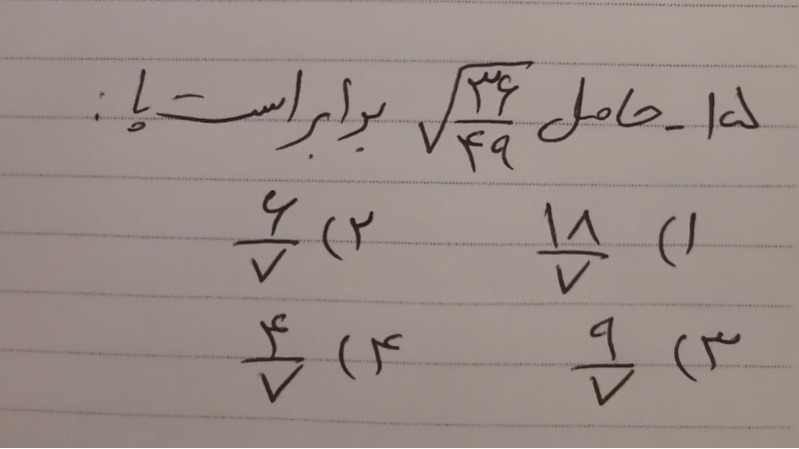 ۱۵ـ حاصل √۳۶/۴۹ برابر است با :
۱) ۱۸/۷ ۲) ۶/۷
۳) ۹/۷ ۴) ۴/۷